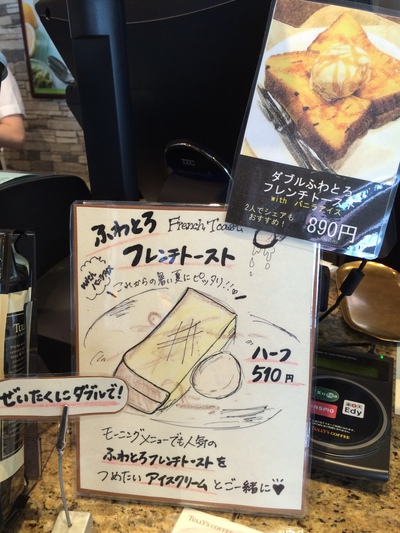 ダブルふわとろ
フレンチトースト
with バニラアイス
2人でシェアも
おすすめ！
890円
ふわとろ French Toast
フレンチトースト
with
これからの暑い夏にピッタリ!!
ハーフ
510円
ぜいたくにダブルで!
モーニングメニューでも人気の
ふわとろフレンチトーストを
つめたい アイスクリーム とご一緒に♥
Edy
TULLY'S COFFEE
TULLY'S COFFEE